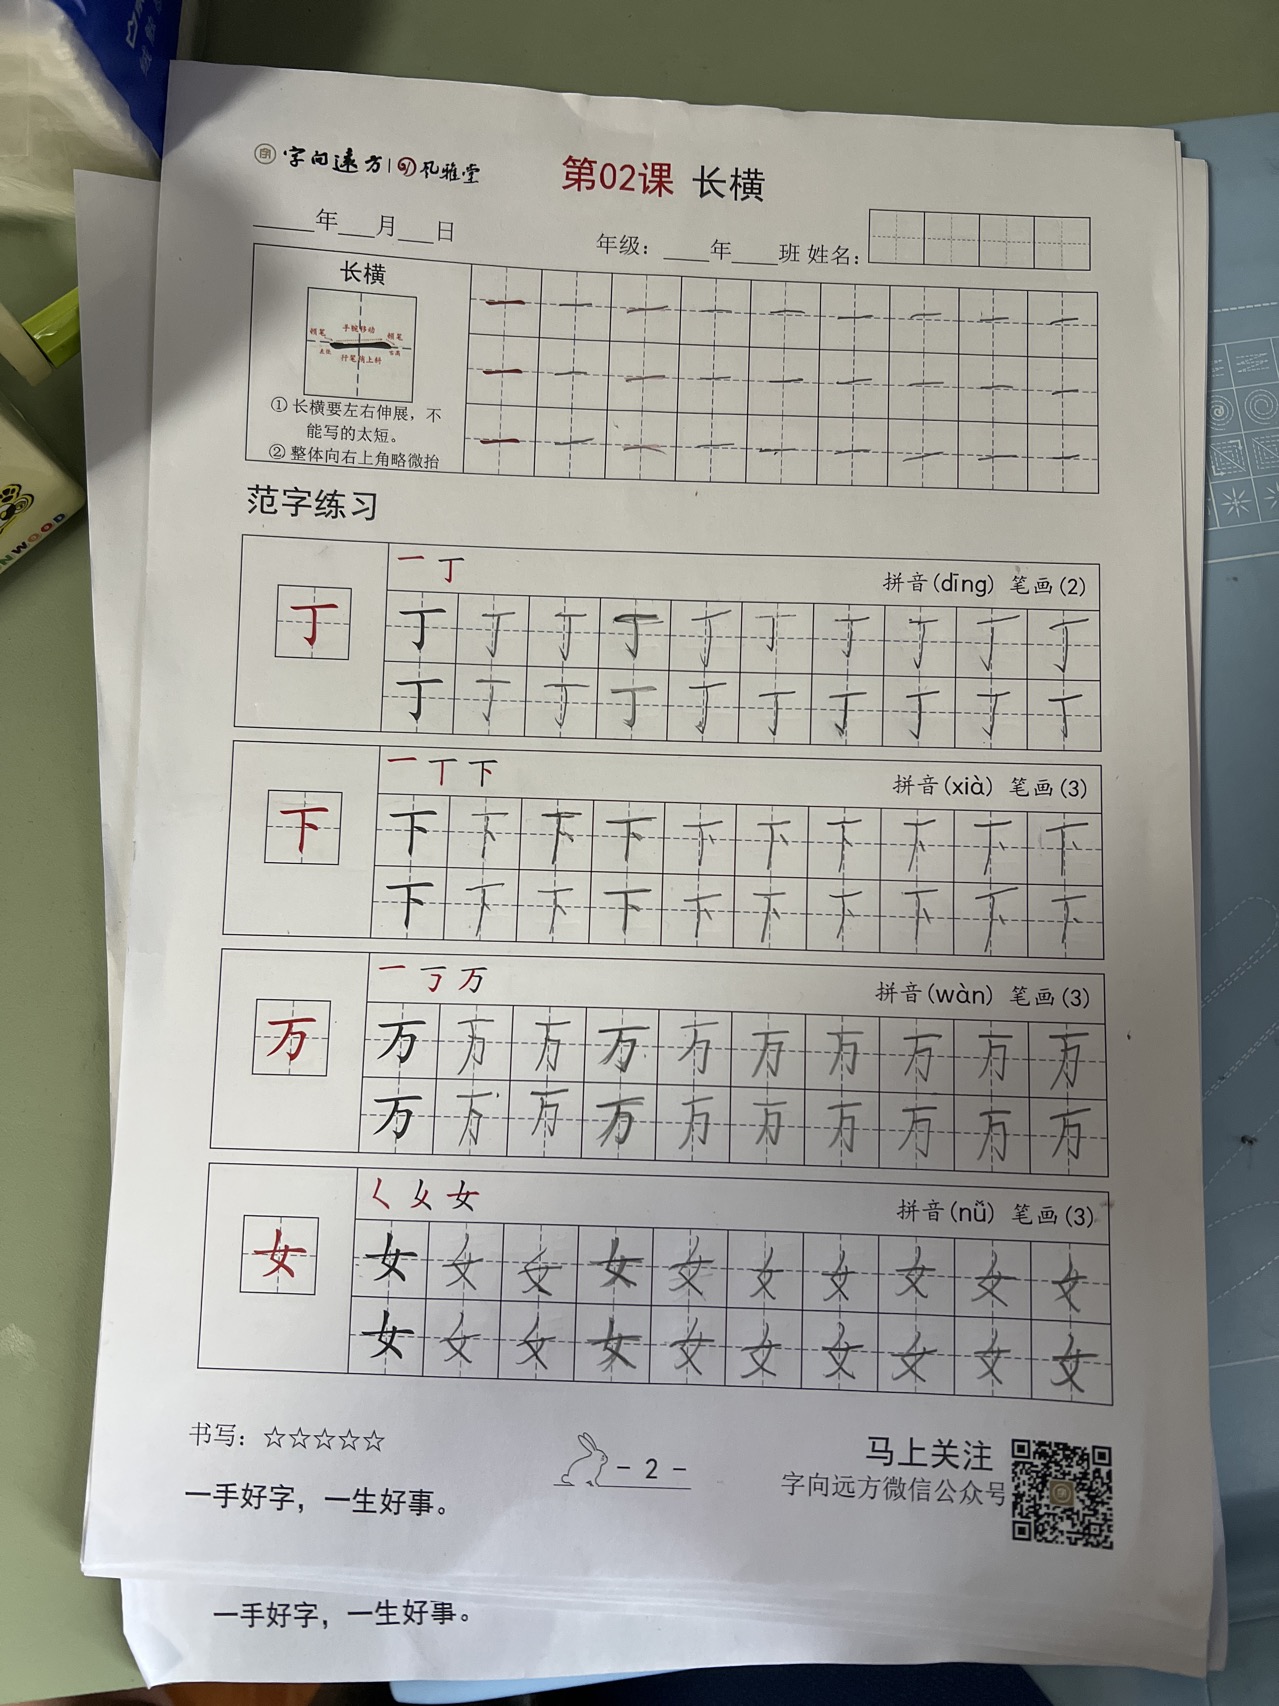 字向远方 风雅堂
第02课 长横
____年___月___日
年级：____年____班 姓名：
长横
顿笔 手腕移动 顿笔
左低 行笔稍上斜 右高
① 长横要左右伸展，不
能写的太短。
② 整体向右上角略微抬
范字练习
丁
一 丁
拼音(dīng) 笔画(2)
丁 丁 丁 丁 丁 丁 丁 丁 丁 丁
丁 丁 丁 丁 丁 丁 丁 丁 丁 丁
下
一 丅 下
拼音(xià) 笔画(3)
下 下 下 下 下 下 下 下 下 下
下 下 下 下 下 下 下 下 下 下
万
一 丂 万
拼音(wàn) 笔画(3)
万 万 万 万 万 万 万 万 万 万
万 万 万 万 万 万 万 万 万 万
女
𡿨 乆 女
拼音(nǚ) 笔画(3)
女 女 女 女 女 女 女 女 女 女
女 女 女 女 女 女 女 女 女 女
书写：☆☆☆☆☆
- 2 -
马上关注
字向远方微信公众号
一手好字，一生好事。
一手好字，一生好事。